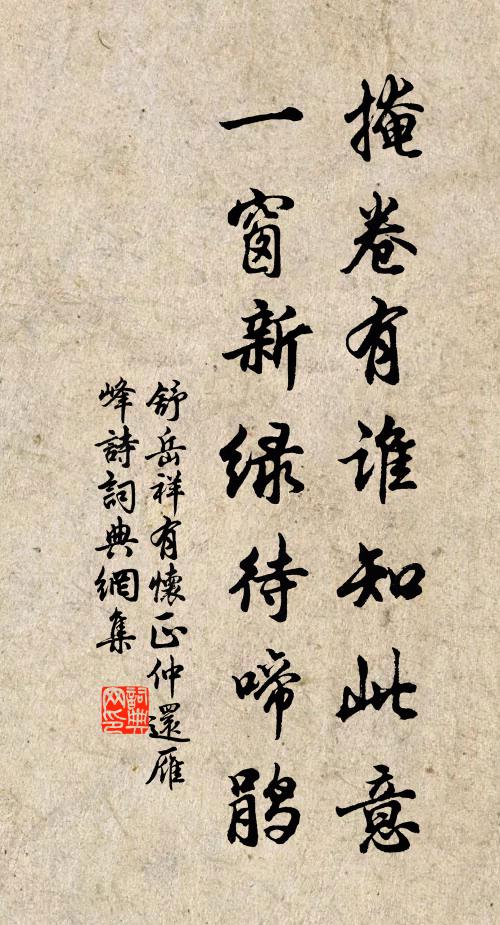 掩卷有谁知此意
一窗新绿待啼鹃
舒岳祥有懷正仲還雁
峰詩詞典網集
詞典网印